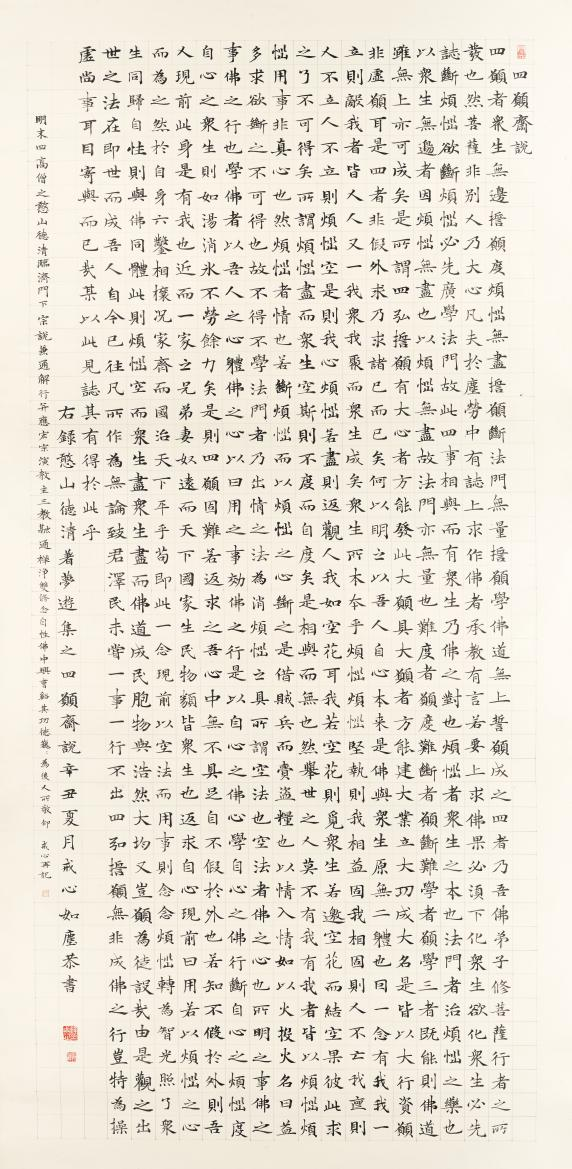 四願齋說
四願者衆生無邊誓願度煩惱無盡誓願斷法門無量誓願學佛道無上誓願成之四者乃吾佛弟子修菩薩行者之所
發也然菩薩非別人乃大心凡夫於塵勞中有誌上求作佛者承教有言若要上求佛果必須下化衆生欲化衆生必先
誌斷煩惱欲斷煩惱必先廣學法門故此四事相與而有衆生乃佛之對也煩惱者衆生之本也法門者治煩惱之藥也
以衆生無邊者因煩惱無盡也以煩惱無盡故法門亦無量也難度者願度難斷者願斷難學者願學三者既能則佛道
雖無上亦可成矣是所謂四弘誓願有大心者方能發此大願具大願者方能建大業立大功成大名是皆以大行資願
非虛願耳是四者非假外求乃求諸已而已矣何以明之以吾人自心本來是佛與衆生原無二體也因一念有我我一
立則敵我者皆人人又一我衆我聚而衆生成矣衆生所木本乎煩惱煩惱堅執則我相益固我相固則人不亡我壹則
人不立人不立則煩惱空是則我心煩惱若盡則返觀人我如空花耳我若空花則覓衆生若邀空花而結空果彼此求
之了不可得矣所謂煩惱盡而衆生空斯則不度而自度矣是相與而無也然舉世之人莫不有我有我者皆以煩惱煩
惱用事非真心也然煩惱者情也若斷煩惱而以煩惱之心斷之是借賊兵而賫盜糧也以情入情如以火投火名曰益
多求欲斷之不可得也故不得不學法門者乃出情之法為消煩惱之具所謂空法也空法者佛之心也所明之事佛之
事佛之行也學佛者以吾人之心體佛之心以日用之事効佛之行是以自心之佛心學自心之佛行斷自心之煩惱度
自心之衆生則如湯消氷不勞餘力矣是則四願固難若返求之吾心中無不具足自不假於外也若知不假於外則吾
人現前此身是有我也近而一家之兄弟妻奴遠而天下國家生民物類皆衆生也返求自心現前日用若以煩惱之心
而為之然於自身六鑿相攘況家齊而國治天下平乎苟即此一念現前以空法而用事則念念煩惱轉為智光照了衆
生同歸自性則與佛同體此則煩惱空而衆生盡衆生盡而佛道成民胞物與浩然大均又豈願為徒設哉由是觀之出
世之法在即世而成吾人自今已往凡所作為無論致君澤民未嘗一事一行不出四弘誓願無非成佛之行豈特為操
虛尚事耳目寄興而已哉某以此見誌其有得於此乎
右錄憨山德清著夢遊集之四願齋說辛丑夏月戒心如塵恭書
明末四高僧之憨山德清臨濟門下宗說兼通解行并應宏宗演教主三教融通禪淨雙修念自性佛中興曹谿其功德巍巍為後人所敬仰 戒心再記